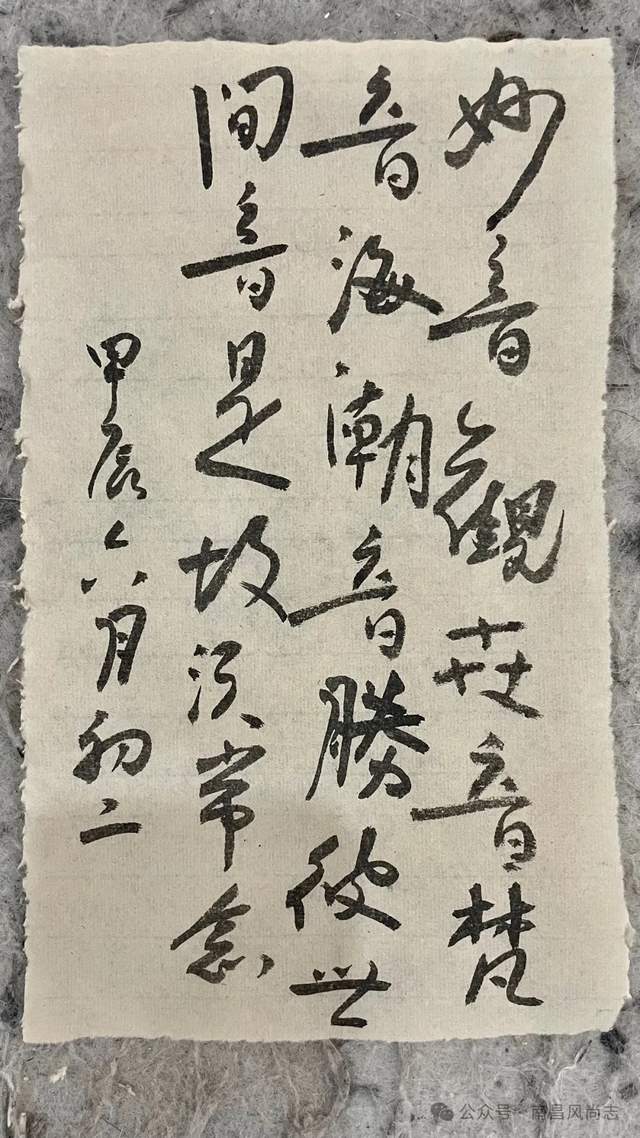 妙音觀世音梵
音海潮音勝彼世
間音是故須常念
甲辰六月初二
公众号·南昌风尚志